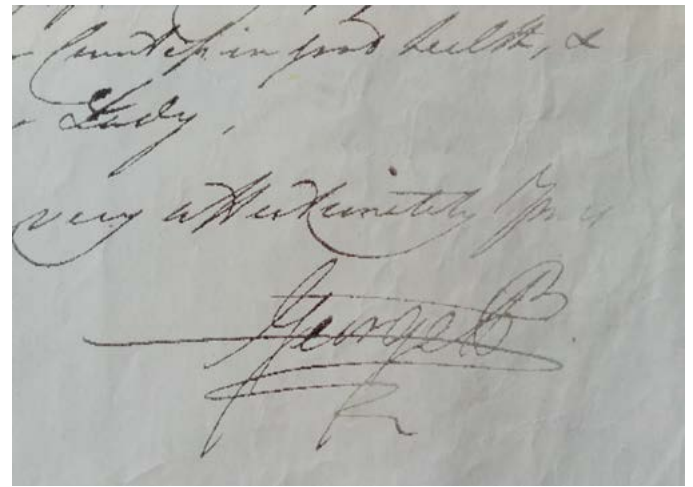 Countess in good health, &
Study,
very affectionately Yours
George P
R